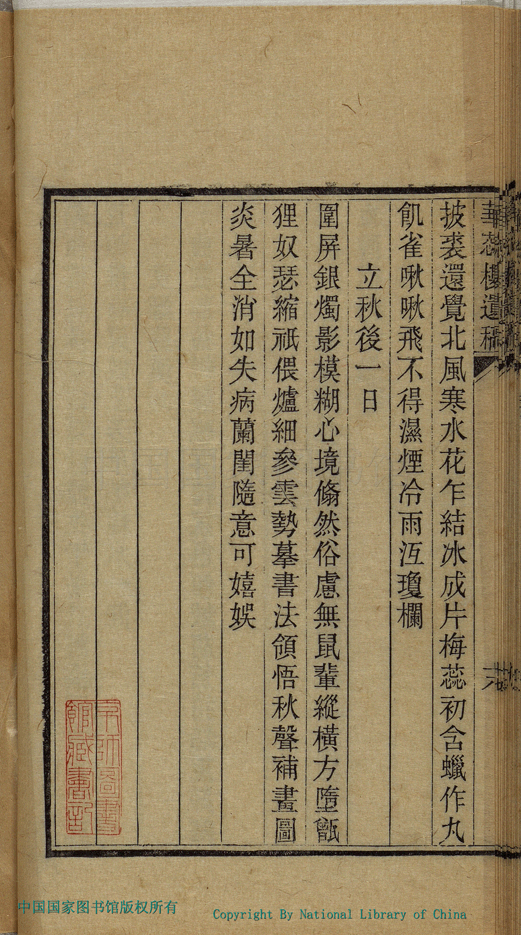 華蕊樓遺稿
披裘還覺北風寒水花乍結冰成片梅蕊初含蠟作丸
飢雀啾啾飛不得濕煙冷雨冱瓊欄
立秋後一日
圍屏銀燭影模糊心境翛然俗慮無鼠輩縱橫方墮甑
狸奴瑟縮祇偎爐細參雲勢摹書法領悟秋聲補畫圖
炎暑全消如失病蘭閨隨意可嬉娛
京師圖書
館藏書記
中国国家图书馆版权所有
Copyright By National Library of China